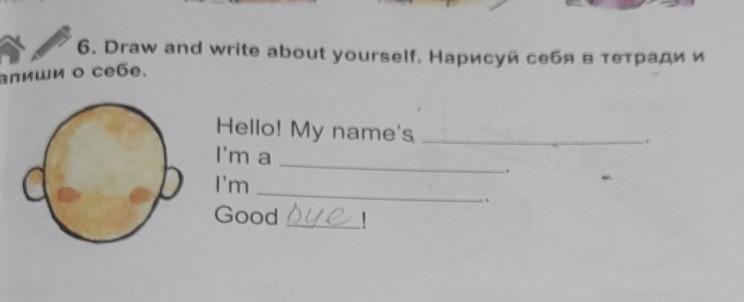 6. Draw and write about yourself. Нарисуй себя в тетради и
апиши о себе.
Hello! My name's ____________.
I'm a ____________.
I'm ____________.
Good bye!